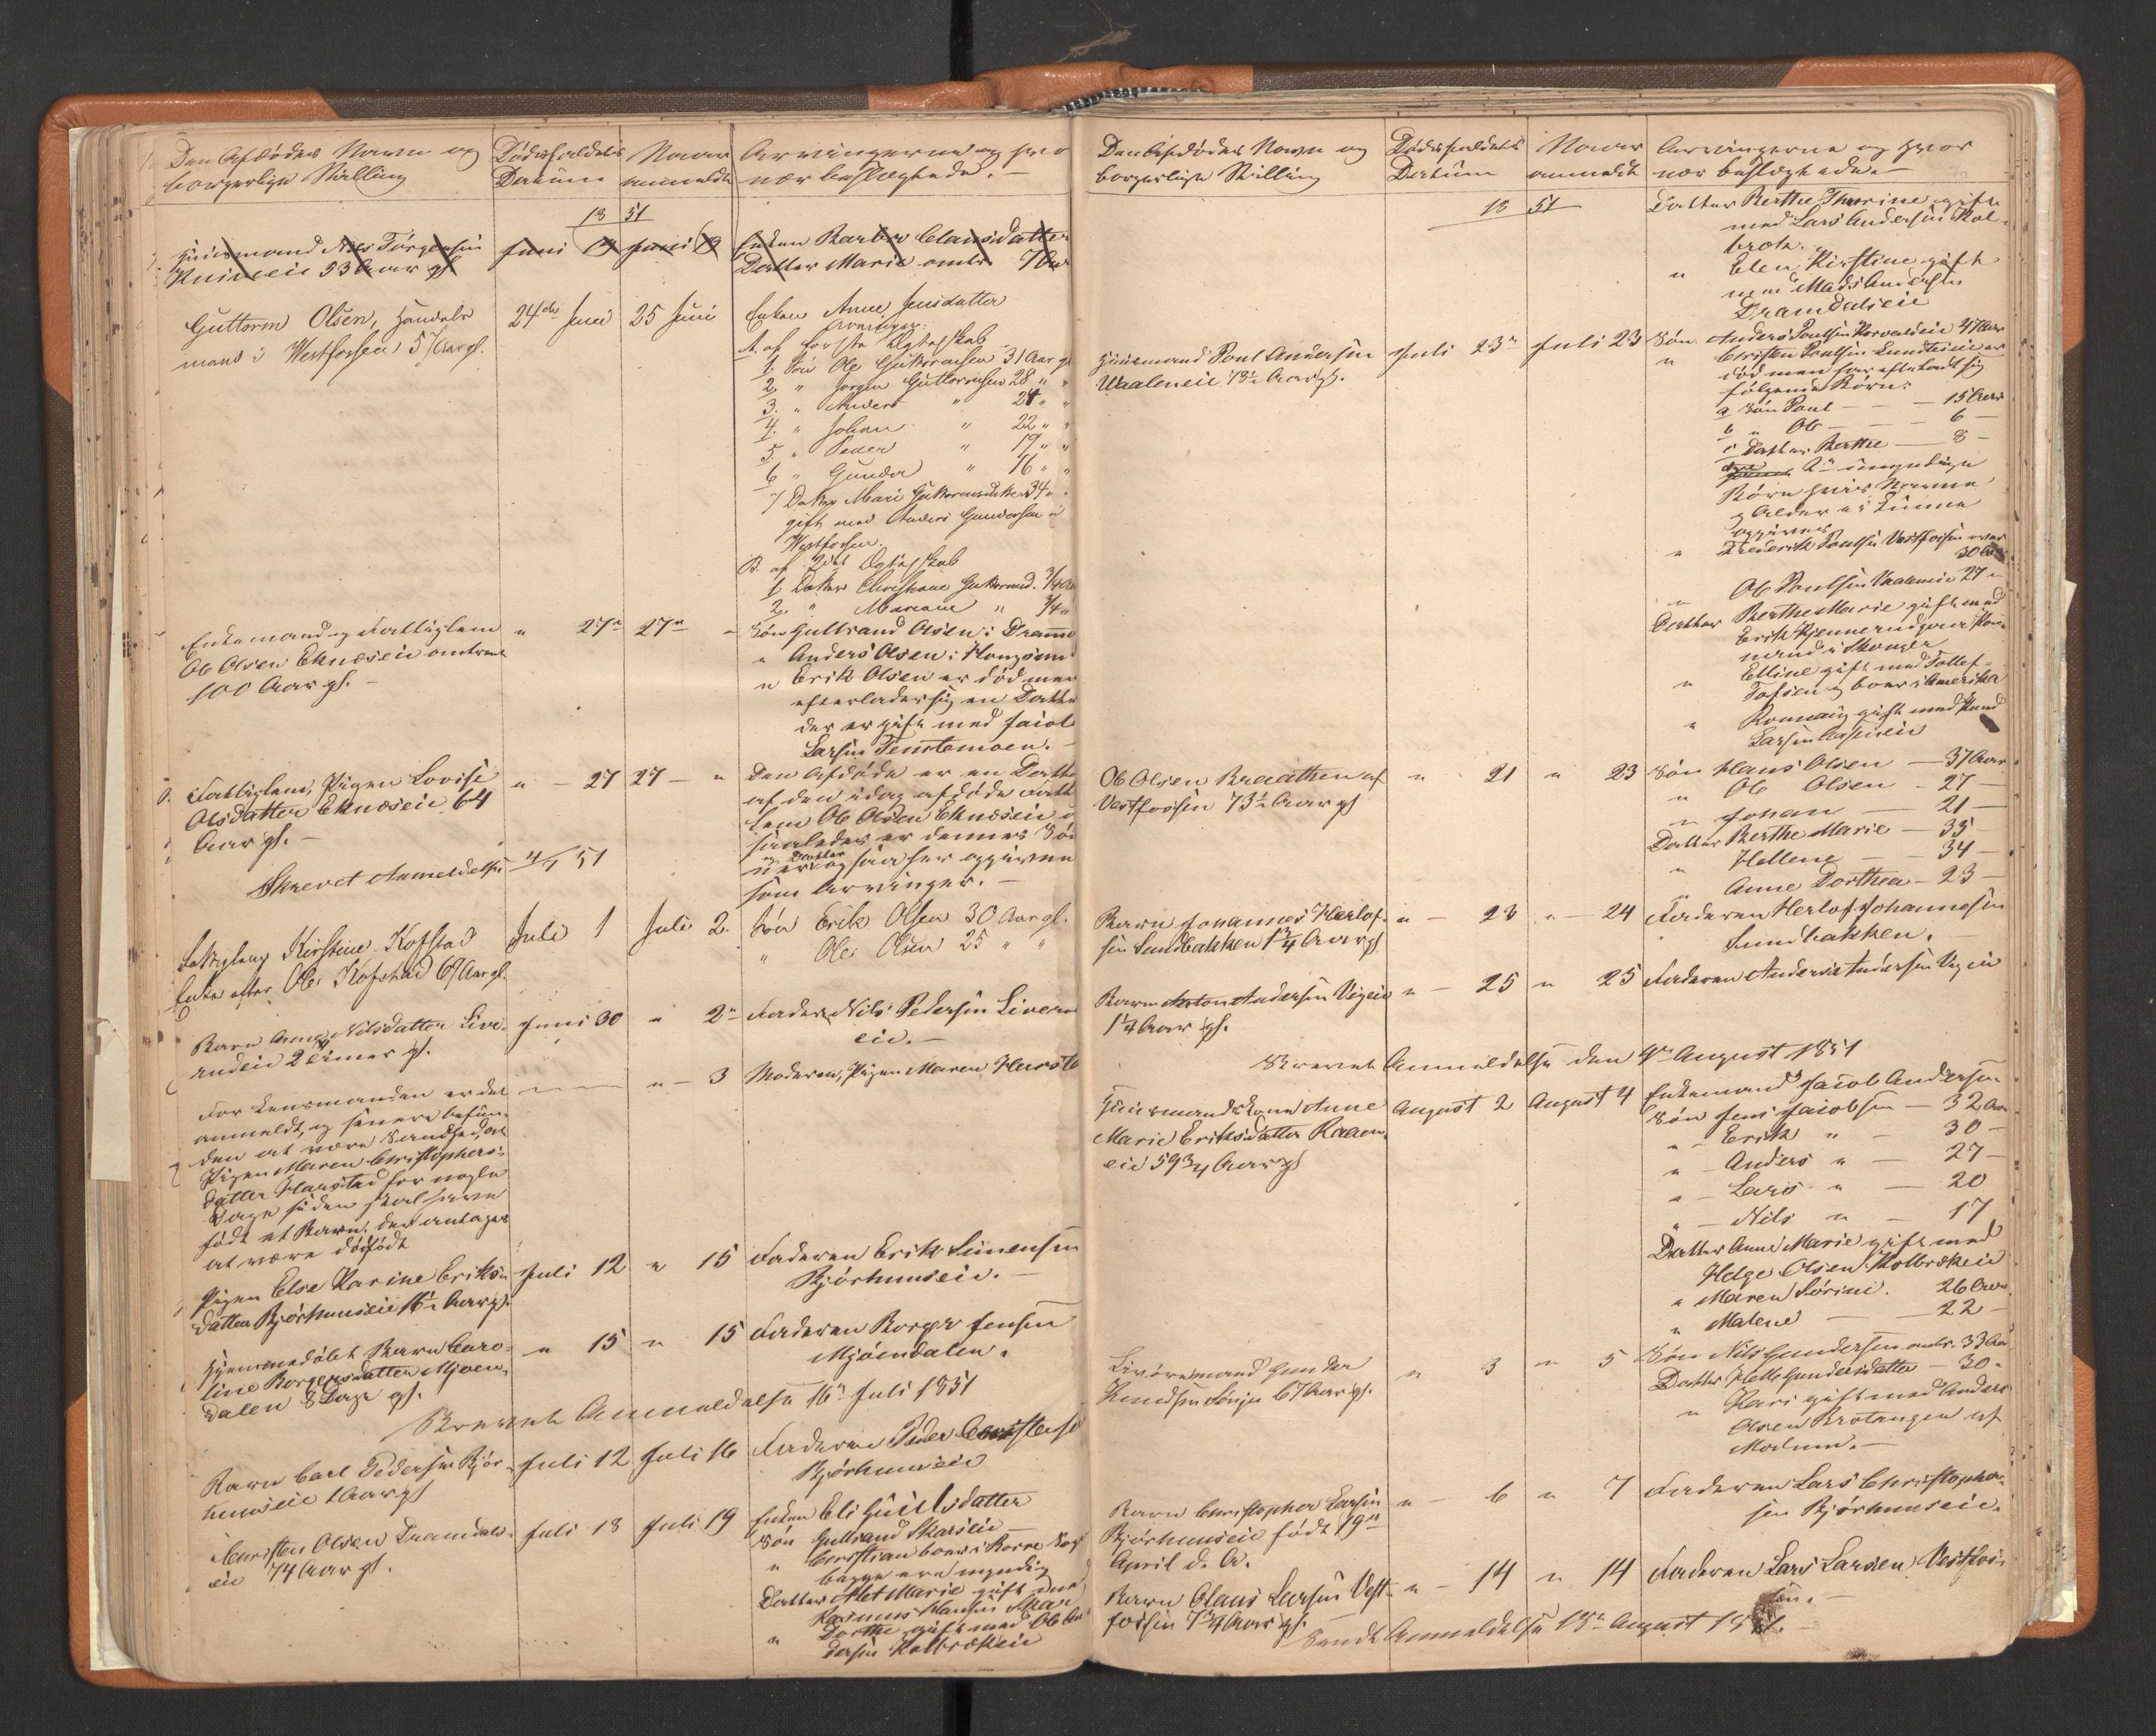 Den Afdødes Navn og
borgerlige Stilling
Dødsfaldets
Datum
Naar
anmeldt
Arvingerne og hvo
nær beslægtede. —
18 51
Huusmand Nils Jørgensen
53 Aar gl.
Juni 19 Juni 19
Enken Barbro Clausdatter
Datter Marie omtr. 7 Aar
Guttorm Olsen, Handels
mand i Westfossen 57 Aar gl.
24de Juni
25 Juni
Enken Anne Jensdatter
Arvinger:
A. af første Ægteskab
1. Søn Ole Guttormsen 31 Aar gl
2. " Jørgen Guttormsen 28 " "
3. " Anders " 24 " "
4. " Johan " 22 " "
5. " Peder " 19 " "
6 " Gunder " 16 " "
7 Datter Mari Guttormsdatter 34 "
gift med Anders Gundersen i
Westfossen.
B. af 2det Ægteskab
1 Datter Christiane Guttormsd. 3/4 Aar
2. " Mariane " 3/4 "
Enkemand og Fattiglem
Ole Olsen Eknæseie omtrent
100 Aar gl. —
" 27n 27n "
Søn Gulbrand Olsen i Dramm
" Anders Olsen i Kongsem
" Erik Olsen er død men
efterlader sig en Datte
der er gift med Jacob
Larsen Temtemoen. —
Fattiglem, Pigen Lovise
Olsdatter Eknæseie 64
Aar gl. —
" — 27 27 — "
Den Afdøde er en Datte
af den idag afdøde Fatt
lem Ole Olsen Eknæseie o
saaledes er dennes Søn
ner og Datter ogsaa her opgivne
som Arvinger. —
Skrevet Anmeldelse 4/7 51
Fattiglem Kirstine Kofstad
Enke efter Ole Kofstad 69 Aar gl.
Juli 1
Juli 2.
Søn Erik Olsen 30 Aar gl.
" Ole Olsen 25 " "
Barn Anne Nilsdatter Live-
rudeie 2 Timer gl.
Juni 30 " 2n
Faderen Nils Pedersen Liverud
eie. —
For Lensmanden er det
anmeldt, og senere befun-
den at være Sandhed, at
Pigen Maren Christophers-
datter Harstad for nogle
Dage siden skal have
født et Barn, der antages
at være dødfødt
" — 3
Moderen, Pigen Maren Harsta
Pigen Else Karine Eriks-
datter Bjørkumseie 16½ Aar gl.
Juli 12 " 15
Faderen Erik Simensen
Bjørkumseie. —
Hjemmedøbt Barn Caro-
line Borgersdatter Mjøen-
dalen 8 Dage gl.
" 15 " 15
Faderen Borger Jensen
Mjøendalen.
Skrevet Anmeldelse 16n Juli 1851
Barn Carl Pedersen Bjør-
kumseie 1 Aar gl
Juli 12 Juli 16
Faderen Peder Christense
Bjørkumseie
Christen Olsen Dramdals-
eie 74 Aar gl.
Juli 18 Juli 19
Enken Eli Guulsdatter
Søn Gulbrand Skarseie —
" Christian boer i
begge ere myndig
Datter Alet Marie gift med
Rasmus Hansen
" Dorthe gift med Ole An
dersen Kolbrækeie
Den Afdødes Navn og
borgerlige Stilling
Dødsfaldets
Datum
Naar
anmeldt
Arvingerne og hvor
nær beslægtede. —
18 51
Datter Berthe Thorine gift
med Lars Andersen Kol-
bræk.
" Elen Kirstine gift
med Mads Andersen
Dramdalseie
Huusmand Poul Andersen
Waaleneie 73½ Aar gl.
Juli 23n Juli 23
Søn Anders Poulsen Korvaldeie 47 Aar
" Christen Poulsen Lundteieie er
død men har efterladt sig
følgende Børn:
a Søn Poul — — 15 Aar
b " Ole — — 6 —
c Datter Berthe — 8 —
umyndige
Børn hvis Navne
og Alder ei kunne
opgives
" Frederik Poulsen Vestfossen over
30 Aar
" Ole Poulsen Vaaleneie 27 "
Datter Berthe Marie gift med
Erik
mand i Skouger
" Elline gift med Tollef
Tofsen og boer i Amerika
" Ronnaug gift med Knud
Larsen
Ole Olsen Braathen af
Vestfossen 73½ Aar gl
" 21 " 23
Søn Hans Olsen — 37 Aar
" Ole Olsen — 27 —
" Johan — 21 —
Datter Berthe Marie — 35 —
" Hellene — 34 —
" Anne Dorthea — 23 —
Barn Johannes Herlof-
sen Sundbakken 1¾ Aar gl
" — 23 " — 24
Faderen Herlof Johannesen
Sundbakken. —
Barn Anton Andersen Vigeie
1¼ Aar gl.
" — 25 " 25
Faderen Anders Andersen Vigeie
Skrevet Anmeldelse den 4n August 1851
Huusmandskone Anne
Marie Eriksdatter Raaen-
eie 59¾ Aar gl
August 2 August 4
Enkemand Jacob Andersen
Søn Jens Jacobsen — 32 Aar
" Erik " — 30 —
" Anders " — 27 —
" — Lars " — 20
" — Nils " — 17
Datter Anne Marie gift med
Helge Olsen Kolbrækeie
" Maren Sørine. 26 Aar
" Malene — 22 —
Livøremand Gunder
Knudsen 67 Aar gl.
" 3 " 5
Søn Nils Gundersen omtr. 33 Aar
Datter Helle Gundersdatter — 30 —
" Kari gift med Anders
Olsen Brotangen af
Modum. —
Barn Christopher Larsen
Bjørkumseie født 19n
April d. A.
" — 6 " 7
Faderen Lars Christopher-
sen Bjørkumseie.
Barn Olaus Larsen Vest-
fossen 7¾ Aar gl.
" — 14 " 14
Faderen Lars Larsen Vestfos-
sen. —
Sendt Anmeldelse 15n August 1851. —